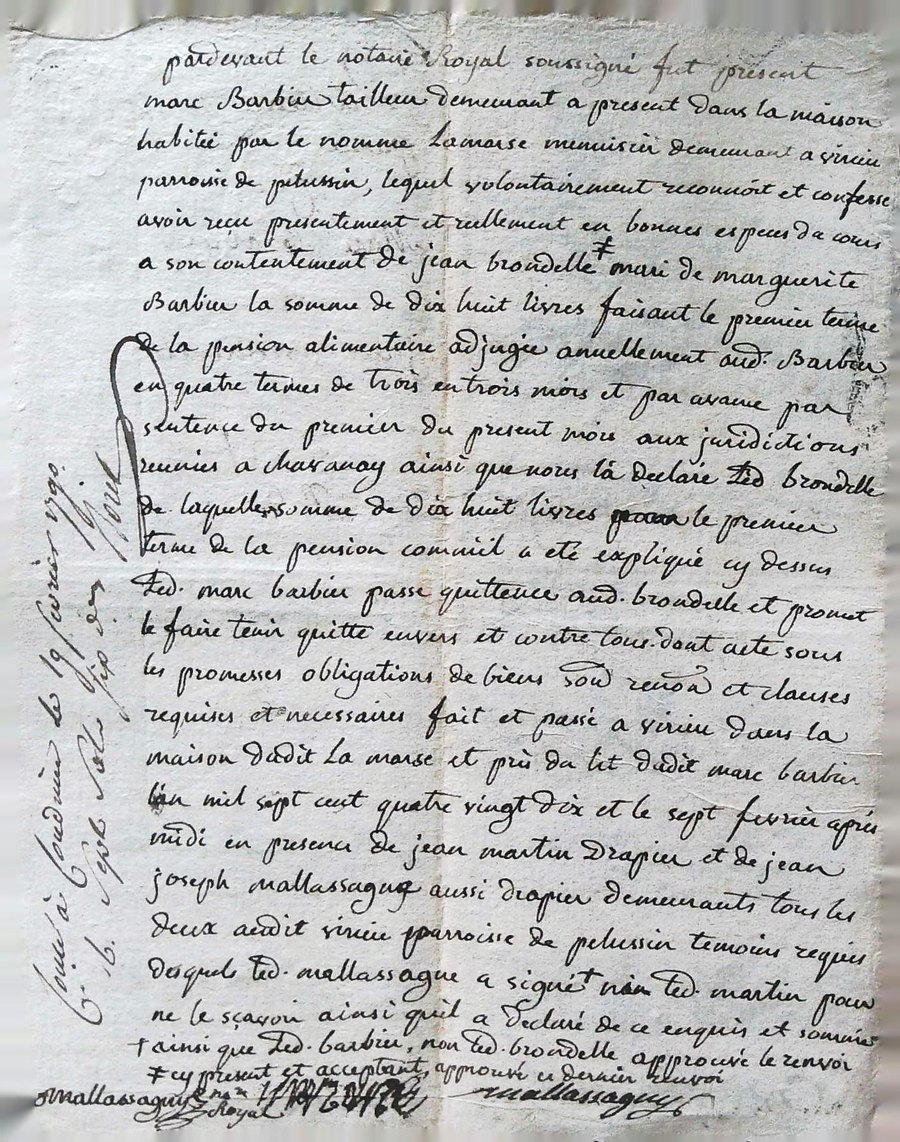 pardevant le notaire Royal soussigné fut present
marc Barbier tailleur demeurant a present dans la maison
habitée par le nomme Lamarse menuisier demeurant a virieu
parroisse de pelussin, lequel volontairement reconnoit et confesse
avoir recu presentement et reellement en bonnes especes du cours
a son contentement de jean brondelle ‡ mari de marguerite
Barbier la somme de dix huit livres faisant le premier terme
de la pension alimentaire adjugée annuellement aud. Barbier
en quatre termes de trois en trois mois et par avance par
sentence du premier du present mois aux juridictions
reunies a chavanay ainsi que nous la declaré Led brondelle
de laquelle somme de dix huit livres le premier
terme de la pension comm'il a eté expliqué cy dessus
Led. marc barbier passe quittence aud. brondelle et promet
le faire tenir quitte envers et contre tous. dont acte sous
les promesses obligations de biens soud renon et clauses
requises et necessaires fait et passé a virieu dans la
maison dudit La marse et près du lit dudit marc barbier
l'an mil sept cent quatre vingt dix et le sept fevrier après
midi en presence de jean martin Drapier et de jean
joseph mallassagne aussi drapier demeurants tous les
deux audit virieu parroisse de pelussin temoins requis
desquels Led. mallassagne a signé † non Led. martin pour
ne le sçavoir ainsi qu'il a declaré de ce enquis et sommé
† ainsi que Led. barbier, non Led. brondelle approuvé le renvoi
‡ cy present et acceptant, approuvé ce dernier renvoi
mallassagny
Royal
mallassagny
à Condrieu le 19 fevrier 1790.